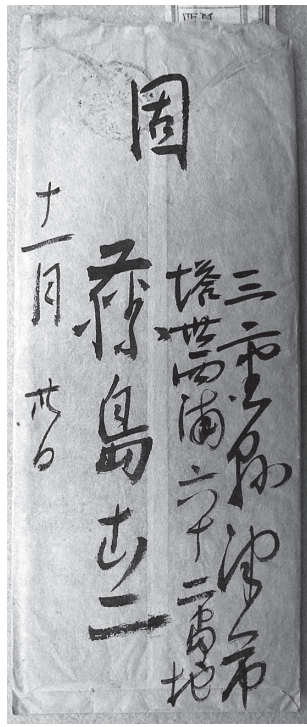 固
三重縣津市
塔世西浦六十二番地
藤島武二
十一月廿日